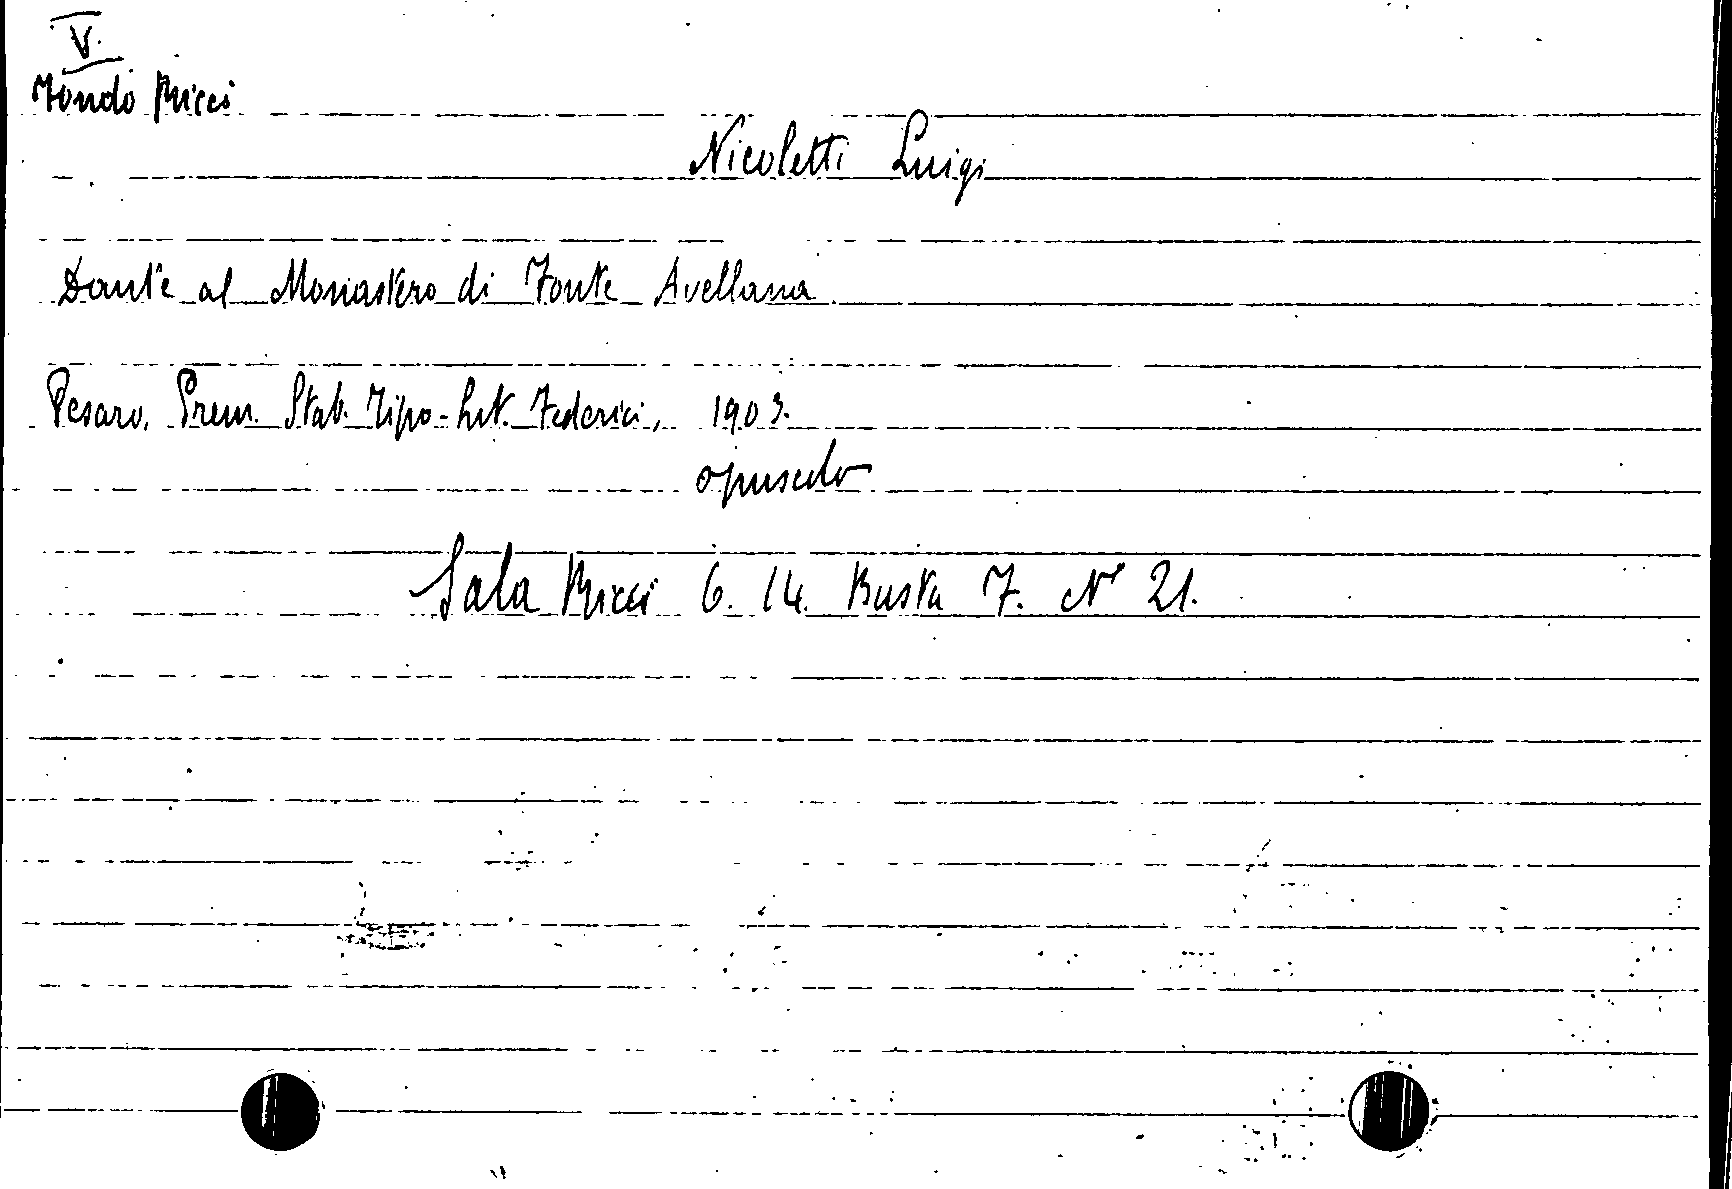 V.
Fondo Ricci
Nicoletti Luigi
Dante al Monastero di Fonte Avellana
Pesaro, Prem. Stab. Tipo-Lit. Federici, 1903.
opuscolo
Sala Ricci 6. 14. Busta 7. N° 21.